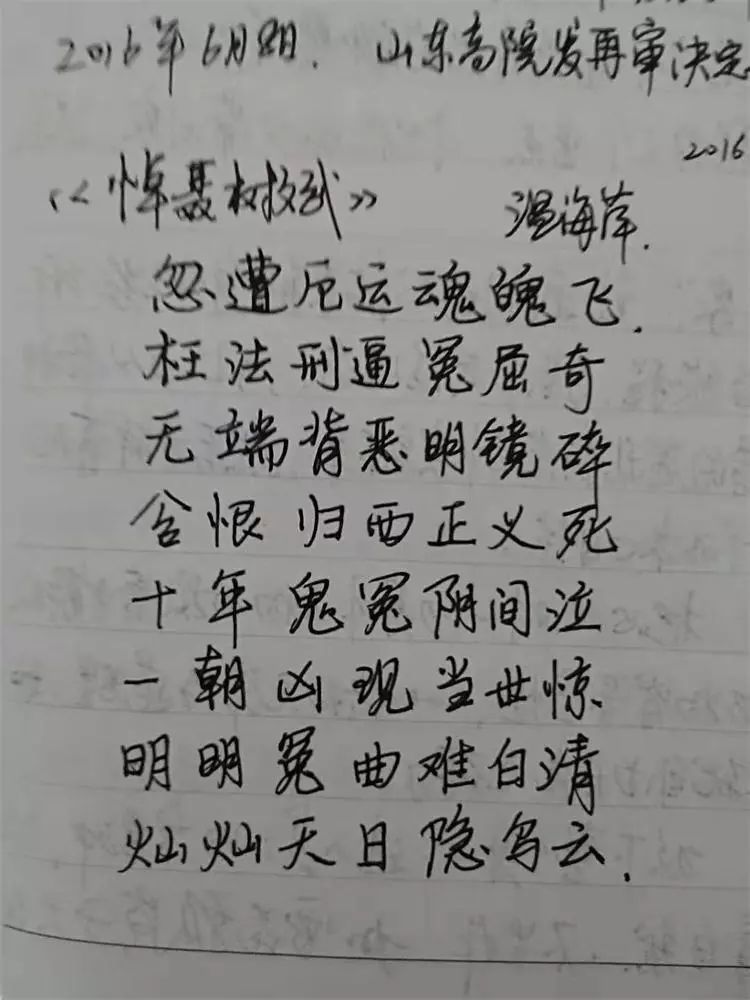 2016年6月8日. 山东高院发再审决定
2016
《悼聂树斌》 温海萍.
忽遭厄运魂魄飞.
枉法刑逼冤屈奇
无端背恶明镜碎
含恨归西正义死
十年鬼冤阴间泣
一朝凶现当世惊
明明冤曲难白清
灿灿天日隐乌云.